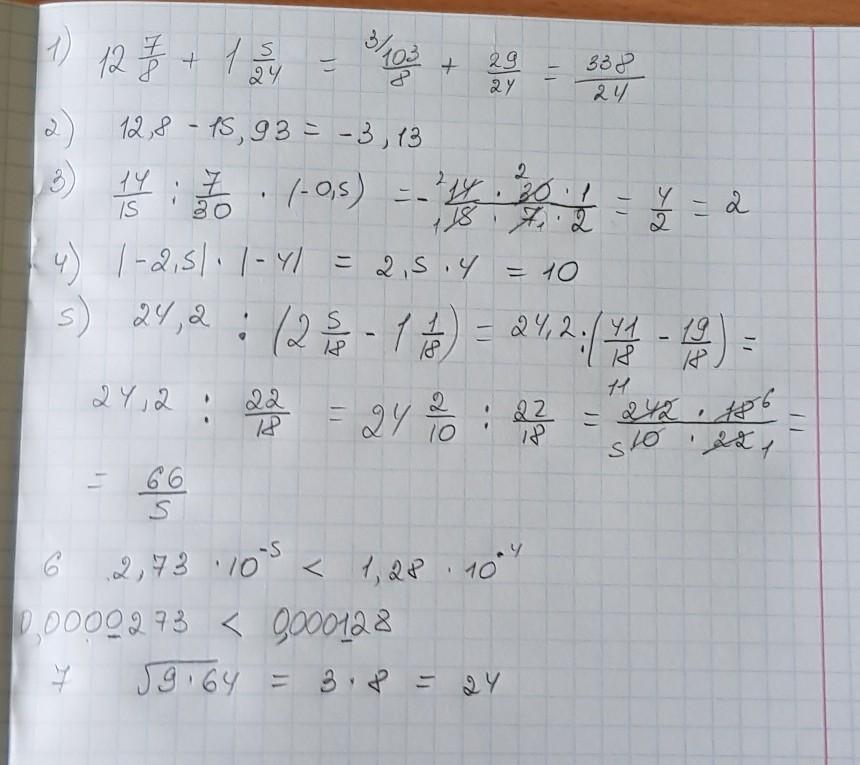 1) 12 7/8 + 1 5/24 = 3/ 103/8 + 29/24 = 338/24
2) 12,8 - 15,93 = -3,13
3) 14/15 : 7/30 · (-0,5) = - 2 14 · 30 2 · 1 / 1 18 · 7 1 · 2 = 4/2 = 2
4) |-2,5| · |-4| = 2,5 · 4 = 10
5) 24,2 : (2 5/18 - 1 1/18) = 24,2 : (41/18 - 19/18) =
24,2 : 22/18 = 24 2/10 : 22/18 = 11 242 · 18 6 / 5 10 · 22 1 =
= 66/5
6 2,73 · 10^-5 < 1,28 · 10^-4
0,0000273 < 0,000128
7 √9·64 = 3 · 8 = 24